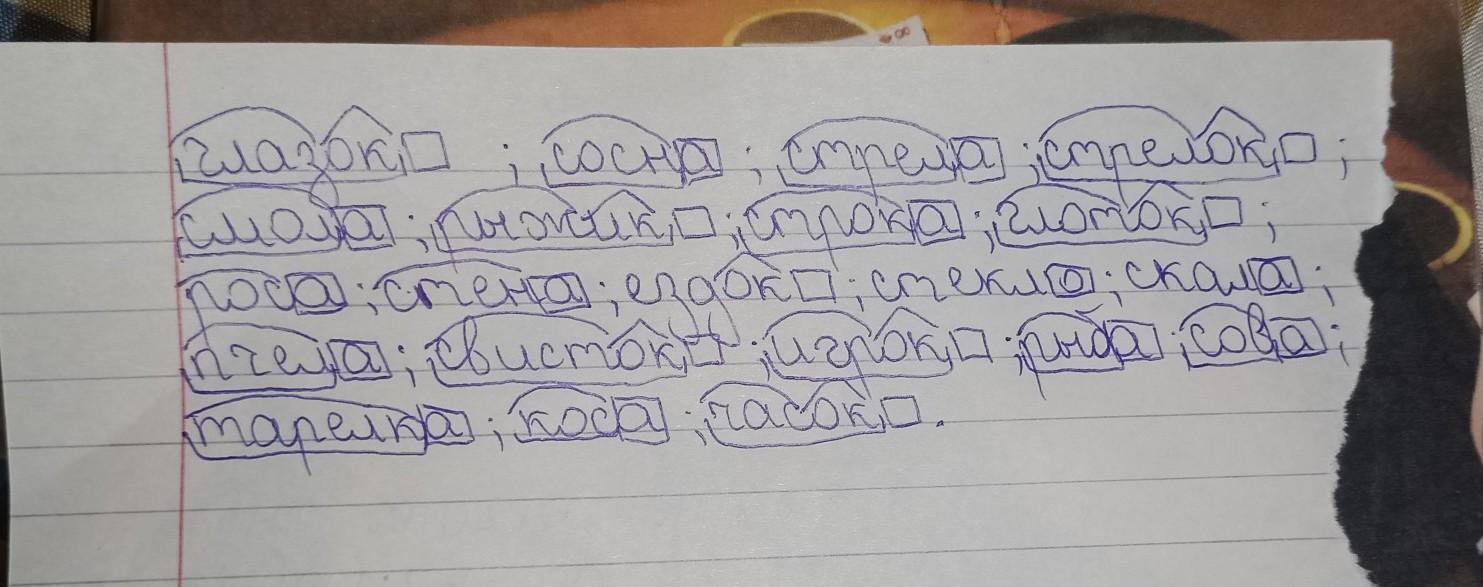 глазок ; сосна ; стрела ; стрелок ;
смола ; рыжик ; строка ; глоток ;
роса ; стена ; ездок ; стекла ; скала ;
пчела ; свисток ; игрок ; рыба ; сова ;
тарелка ; коса ; часок .